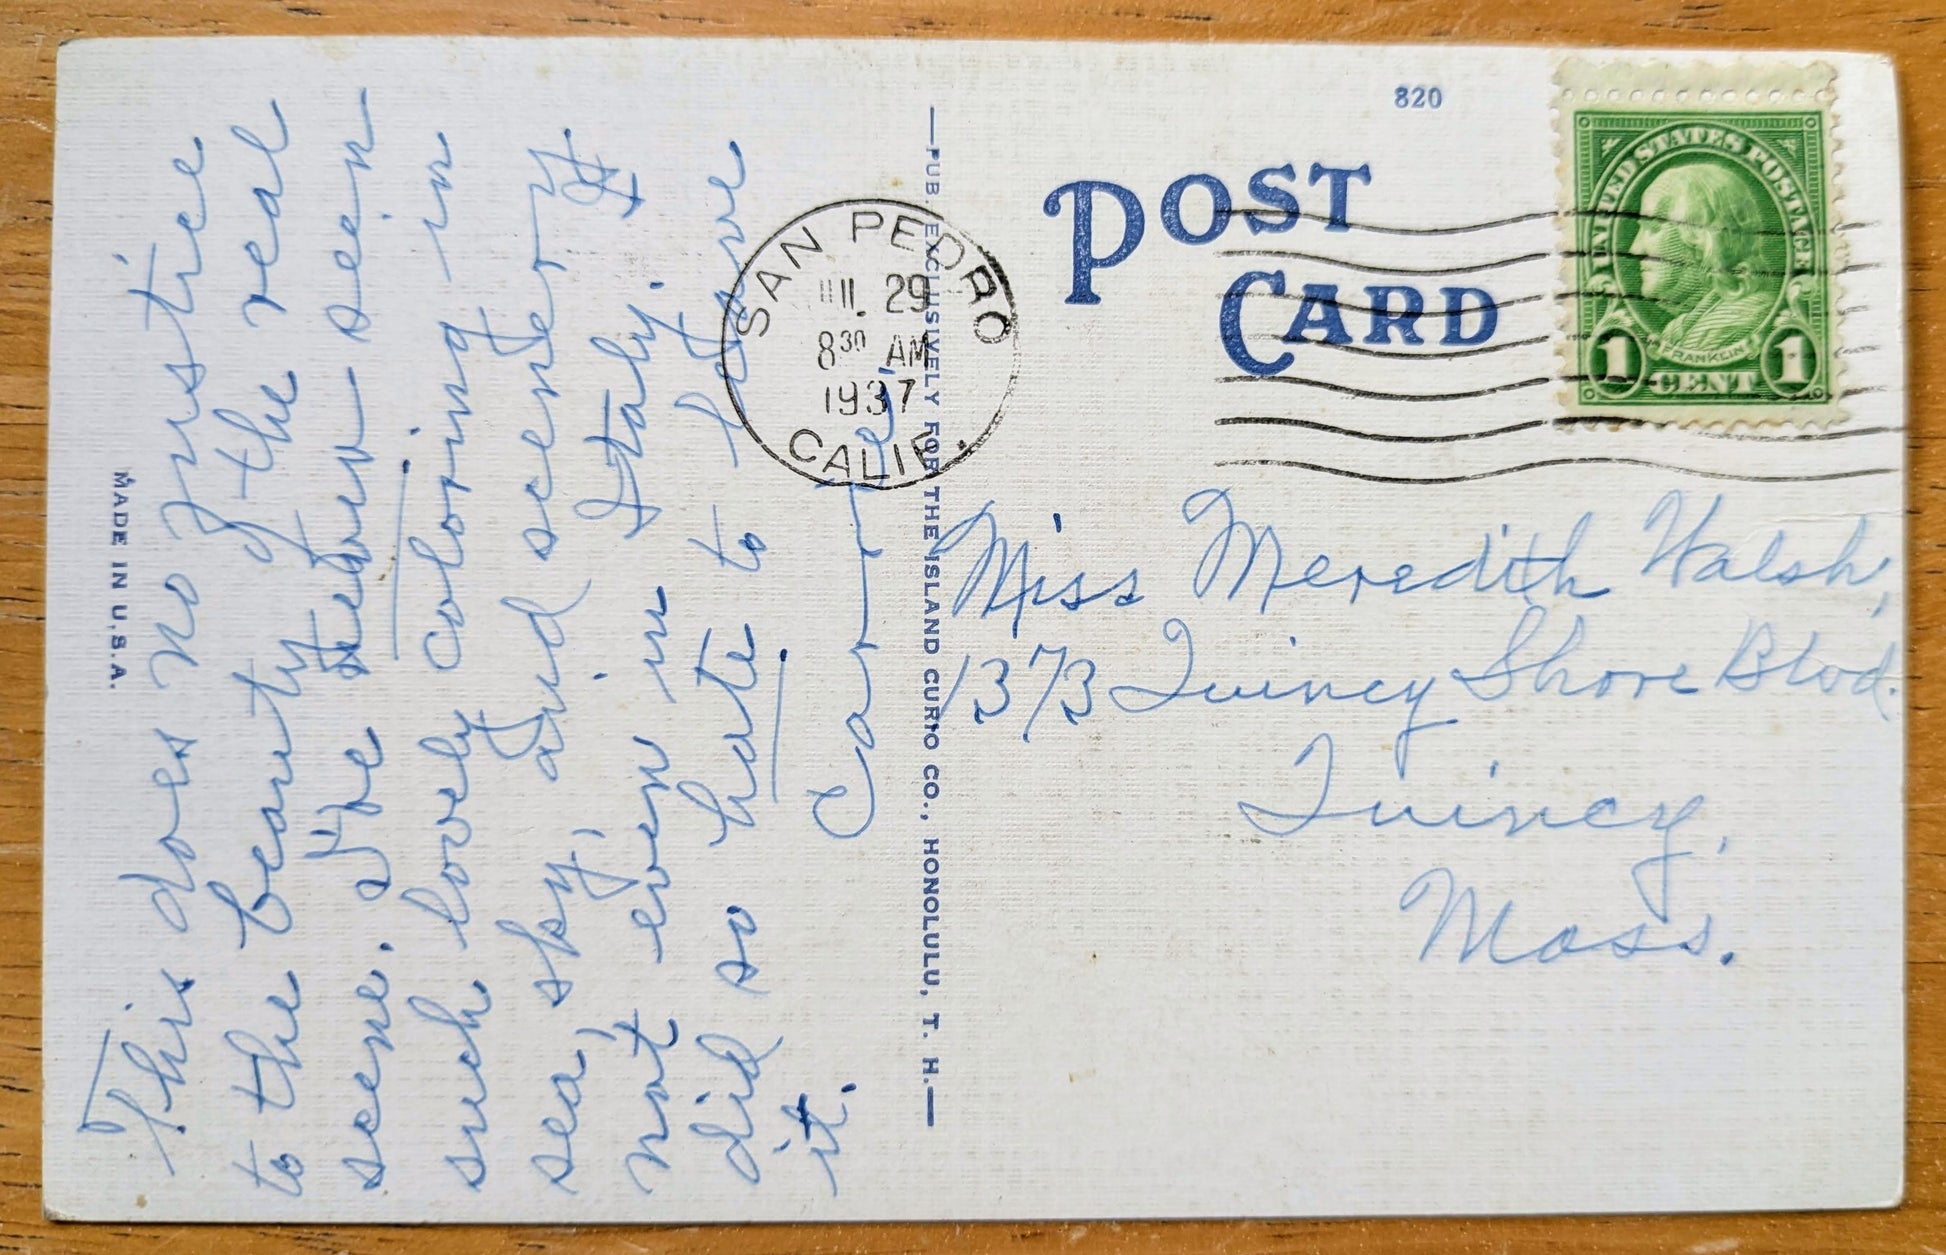 This does no justice
to the beauty of the real
scene. I've never seen
such lovely coloring in
sea, sky, and scenery
not even in Italy. I
did so hate to leave
it. Carrie
MADE IN U.S.A.
PUB. EXCLUSIVELY FOR THE ISLAND CURIO CO., HONOLULU, T. H.
SAN PEDRO
29
8 30 AM
1937
CALIF.
820
POST
CARD
UNITED STATES POSTAGE
FRANKLIN
1 CENT 1
Miss Meredith Walsh,
1373 Quincy Shore Blvd.
Quincy,
Mass.